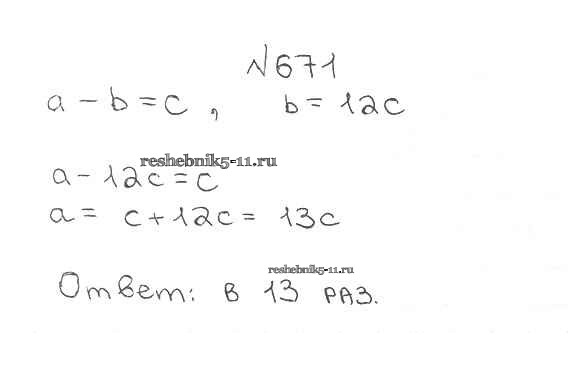 №671
a - b = c , b = 12c
reshebnik5-11.ru
a - 12c = c
a = c + 12c = 13c
reshebnik5-11.ru
Ответ: в 13 раз.